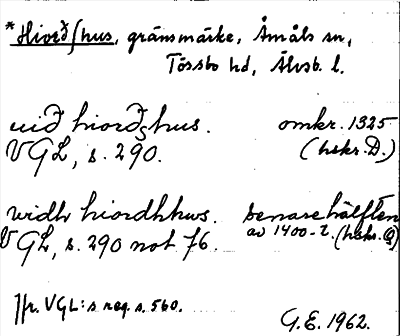 *Hiorðshus, gränsmärke, Åmåls sn,
Tössbo hd, Älvsb. l.
uið hiorðshus. omkr. 1325
VGL, s. 290. (hskr. D.)
widh hiordhhws. senare hälften
VGL, s. 290 not 76. av 1400-t. (hskr. G)
Jfr. VGL:s reg. s. 560.
G.E. 1962.